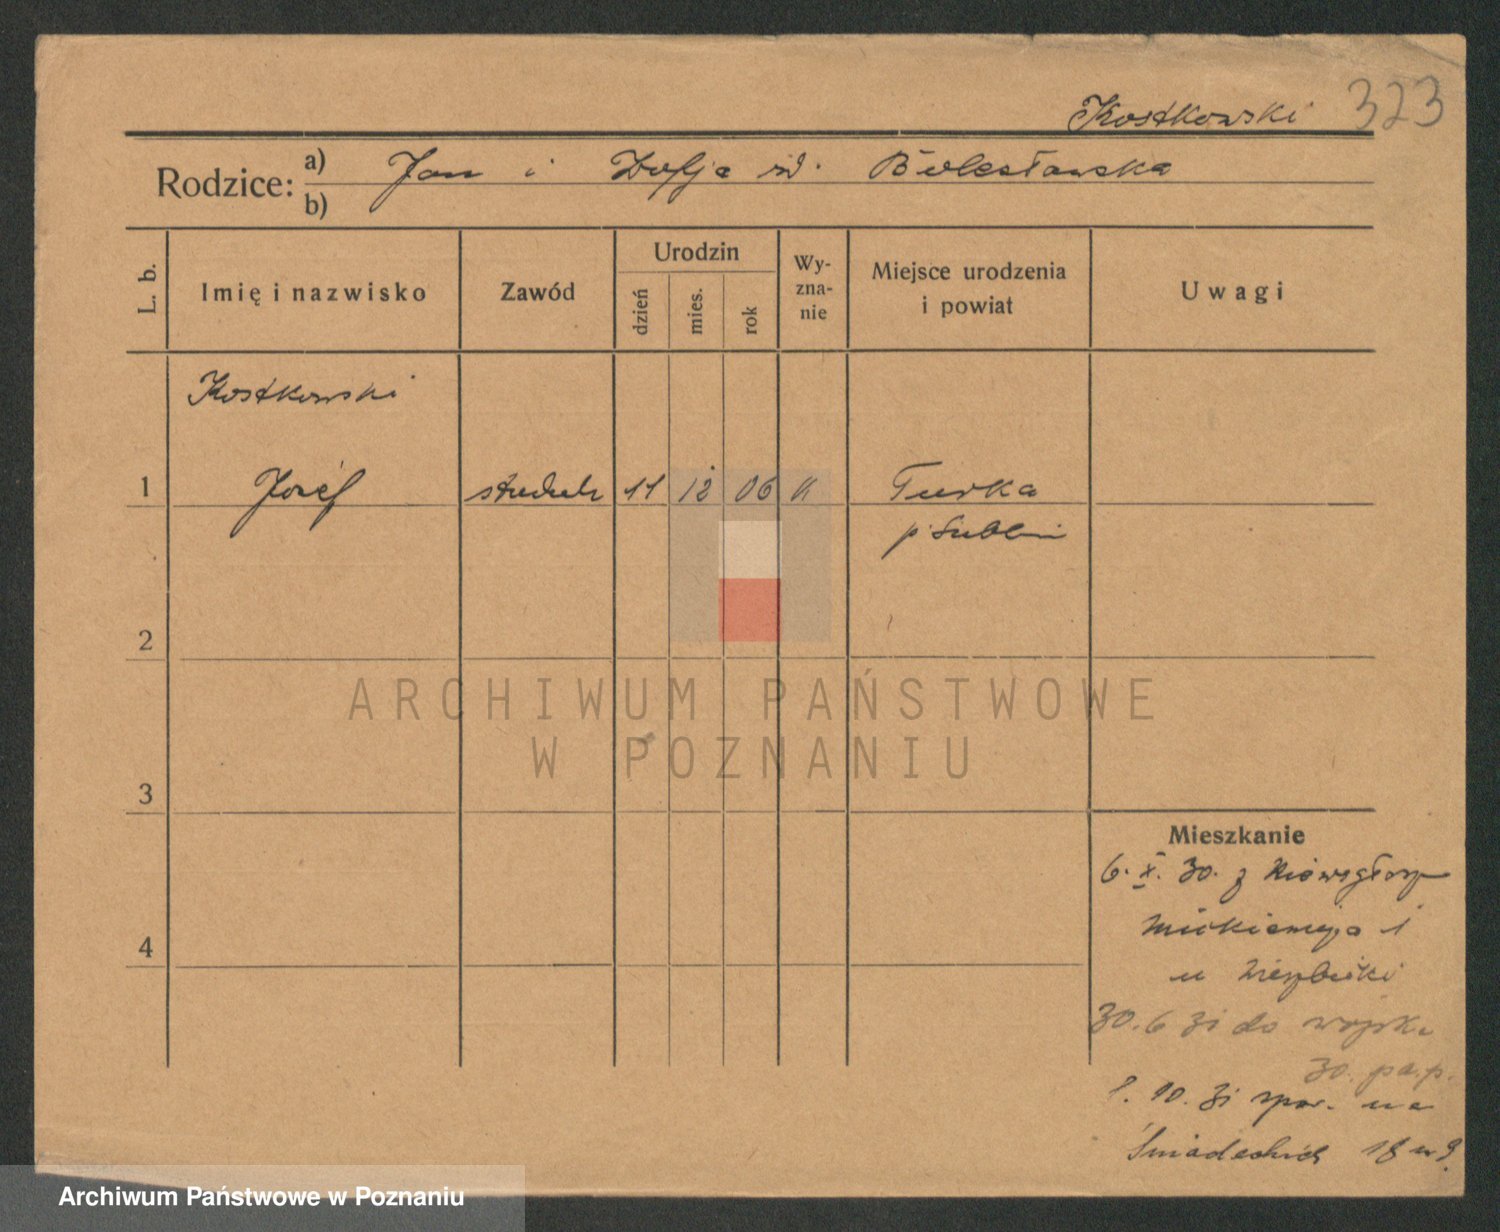 Kostkowski 323
Rodzice: a) Jan i Zofja zd. Bolesławska
b)
L. b.
Imię i nazwisko
Zawód
Urodzin
dzień
mies.
rok
Wy-
zna-
nie
Miejsce urodzenia
i powiat
Uwagi
Kostkowski
1 Józef student 11 12 06 K Turka
p. Lublin
2
3
4
Mieszkanie
6. X. 30. z
1
u
30. 6 31 do wojska
30. p.a.p.
10. 31 na
Śniadeckich 18 m 9.
ARCHIWUM PAŃSTWOWE
W POZNANIU
Archiwum Państwowe w Poznaniu